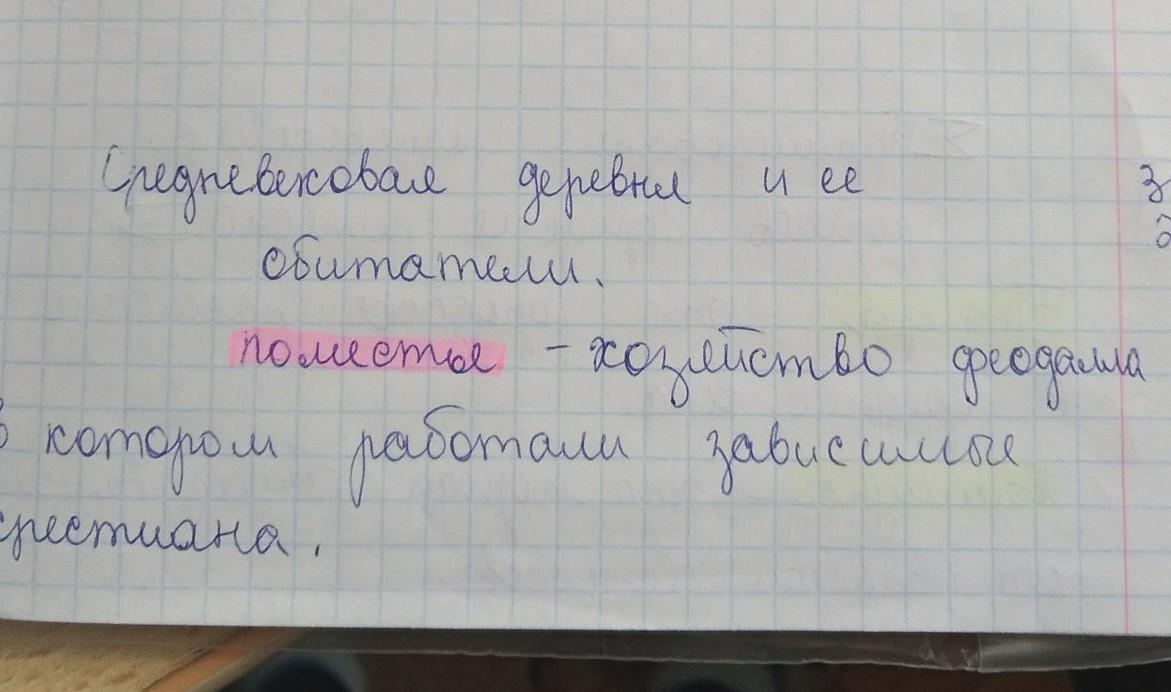 Средневековая деревня и ее
обитатели.
поместье - хозяйство феодалла
в котором работали зависимые
крестиана.